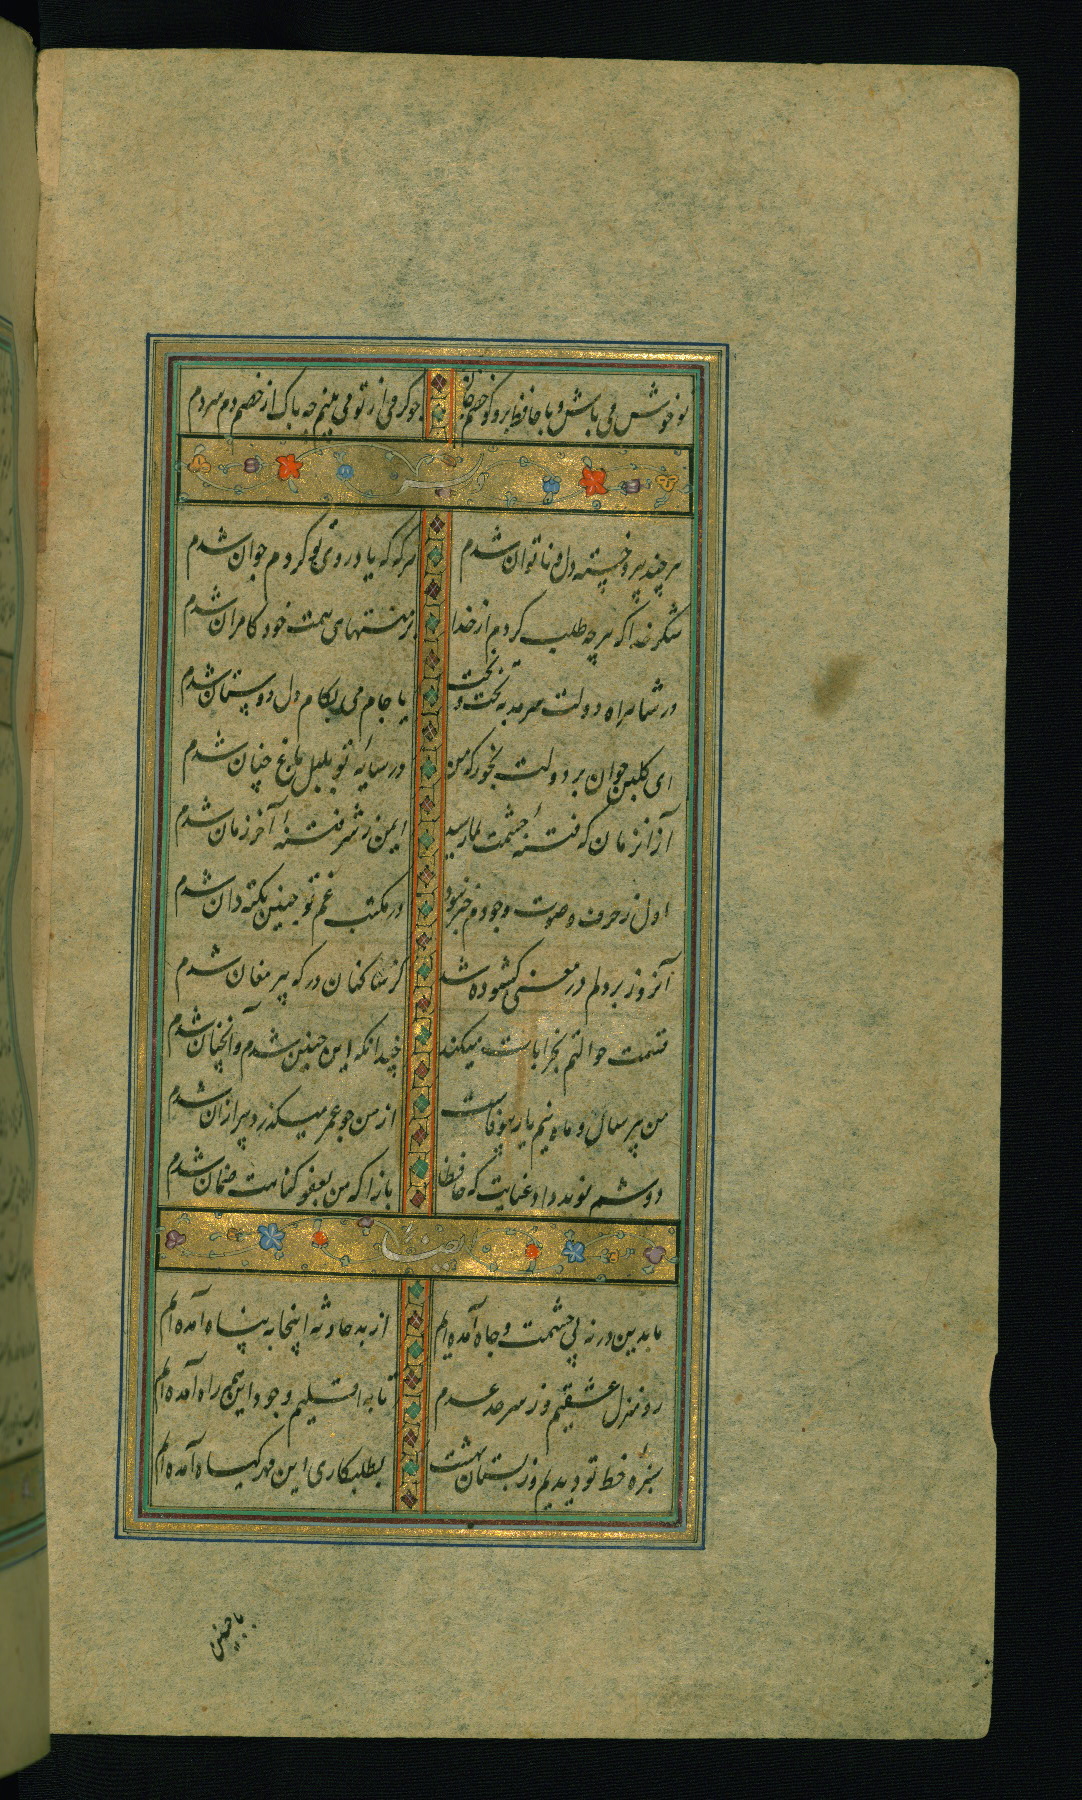 تو خوش می باش و با حافظ برو گو خصم جان چو گرمی از تو می بینم چه باک از خصم دم سردم
وله
هر چند پیر و خسته دل و ناتوان شدم هر گه که یاد روی تو کردم جوان شدم
شکر خدا که هر چه طلب کردم از خدا بر منتهای همت خود کامران شدم
در شاهراه دولت سرمد به تخت بخت با جام می بکام دل دوستان شدم
ای گلبن جوان بر دولت بخور که من در سایه تو بلبل باغ جنان شدم
از آن زمان که فتنه چشمت بما رسید ایمن ز شر فتنه آخر زمان شدم
اول ز حرف و صوت وجودم خبر نبود در مکتب غم تو چنین نکته دان شدم
آنروز بر دلم در معنی گشوده شد کز ساکنان درگه پیر مغان شدم
قسمت حوالتم بخرابات میکند چندانکه این چنین شدم و آنچنان شدم
من پیر سال و ماه نیم یار بیوفاست از من چو عمر میگذرد پیر از آن شدم
دوشم نوید داد عنایت که حافظا باز آ که من بعفو گناهت ضمان شدم
ایضا
ما بدین در نه پی حشمت و جاه آمده ایم از بد حادثه اینجا به پناه آمده ایم
رو منزل عشقیم و ز سرحد عدم تا به اقلیم وجود این همه راه آمده ایم
سبزه خط تو دیدیم و ز بستان بهشت بطلبکاری این مهر گیاه آمده ایم
با چنین